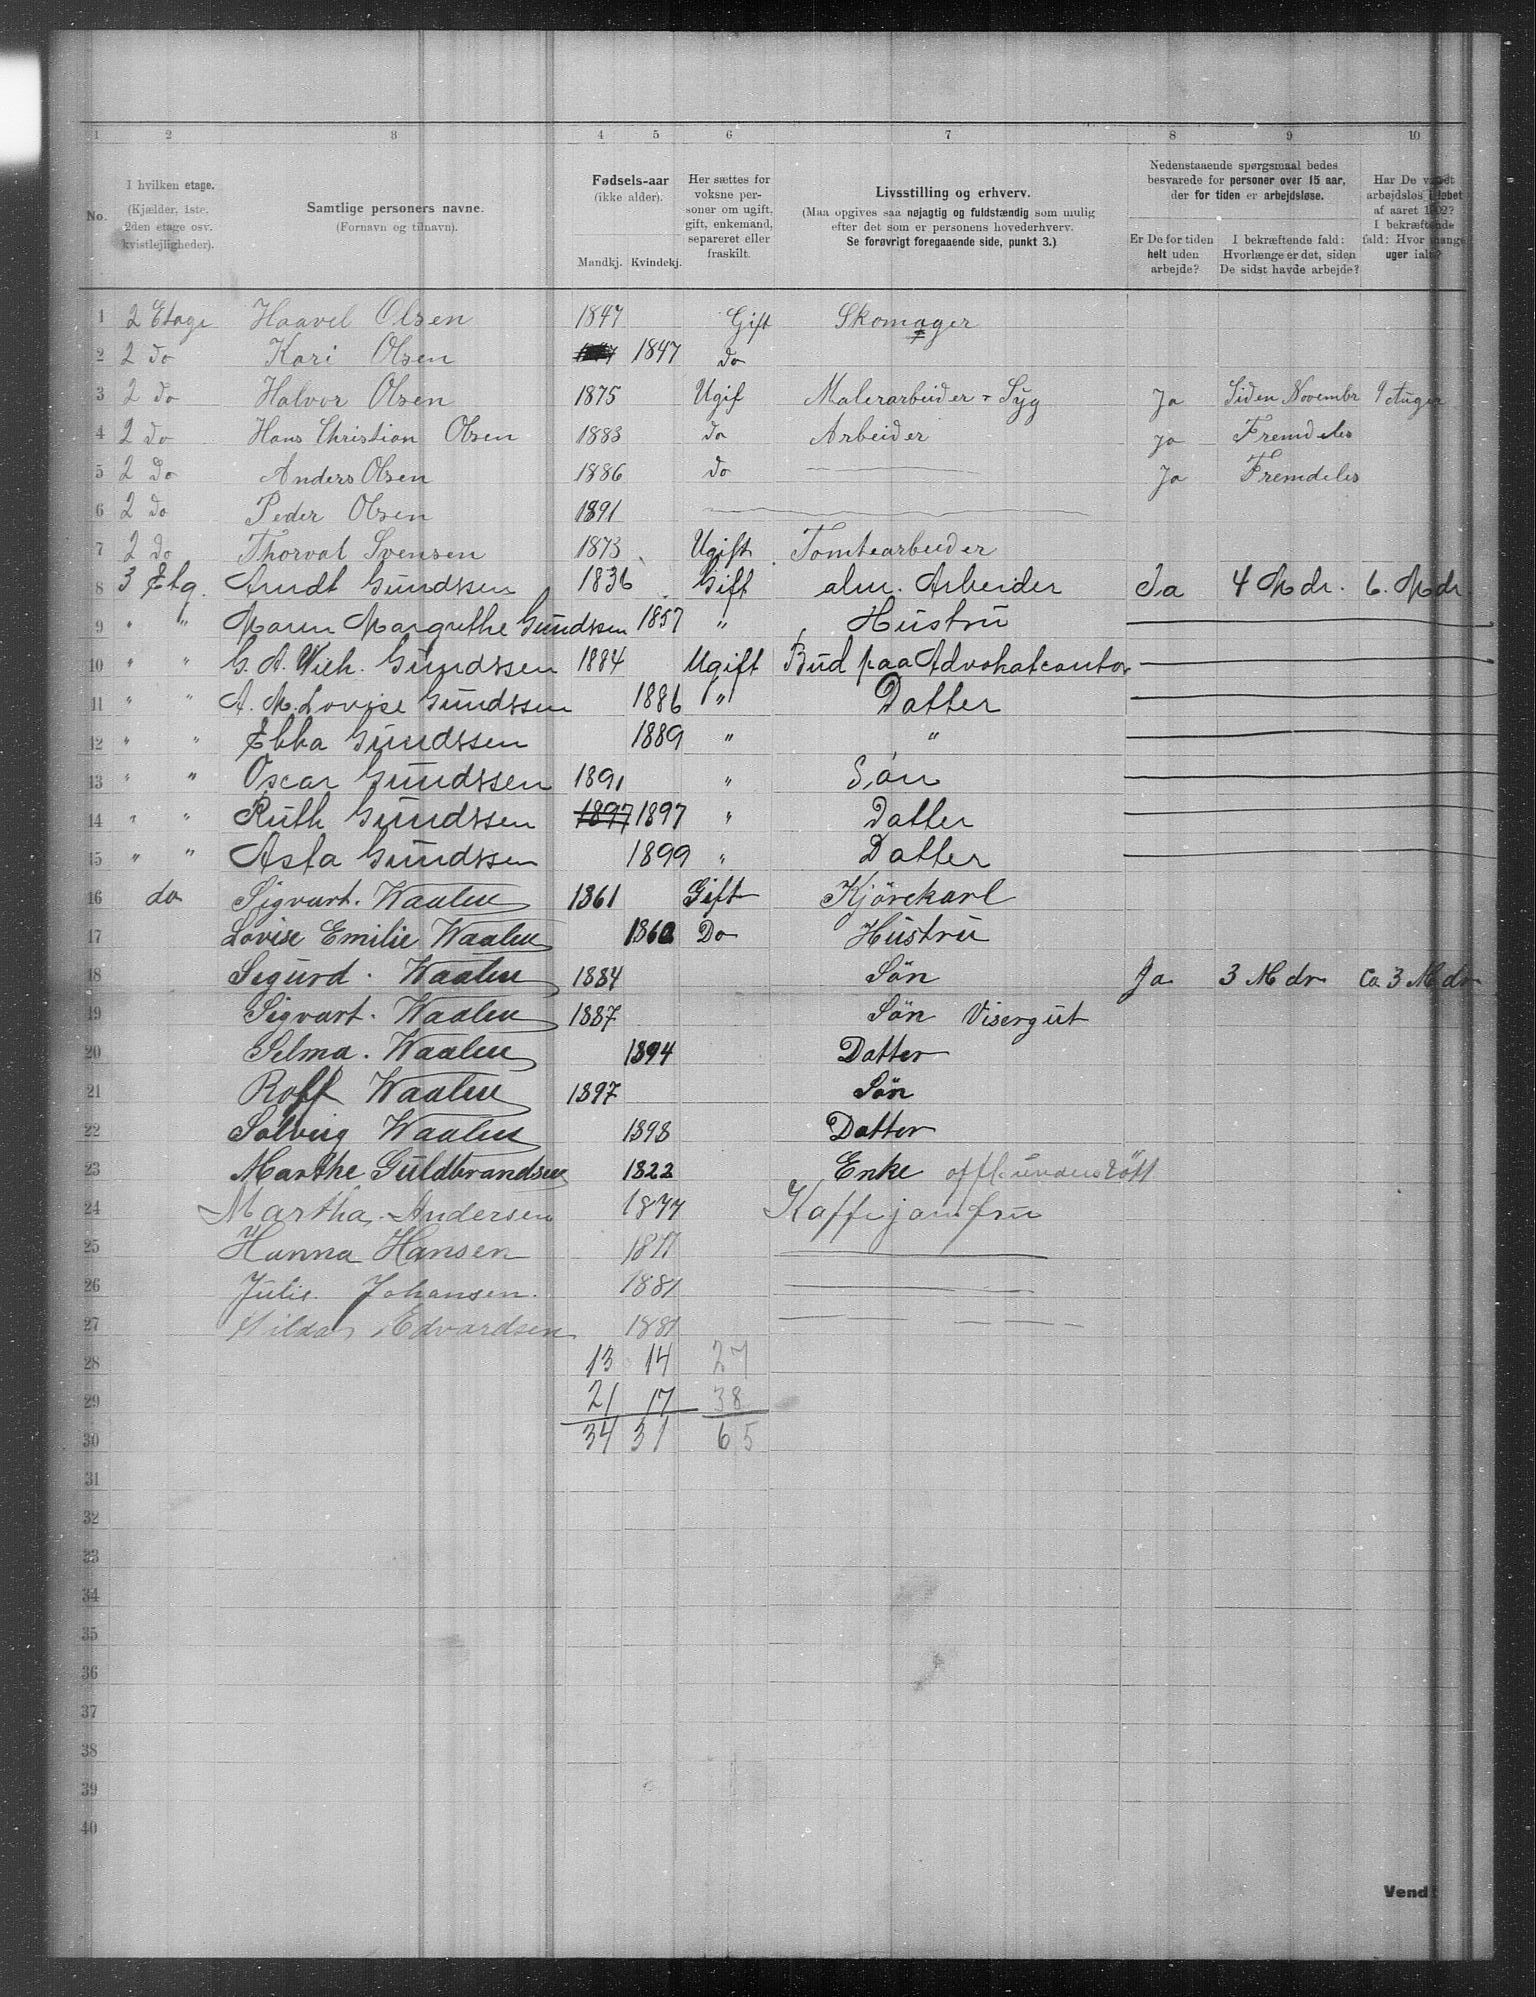 1 2 3 4 5 6 7 8 9 10
No.
I hvilken etage. (Kjælder, 1ste. 2den etage osv. kvistlejligheder).
Samtlige personers navne. (Fornavn og tilnavn).
Fødsels-aar (ikke alder). Mandkj. Kvindekj.
Her sættes for voksne personer om ugift, gift, enkemand, separeret eller fraskilt.
Livsstilling og erhverv. (Maa opgives saa nøjagtig og fuldstændig som mulig efter det som er personens hovederhverv. Se forøvrigt foregaaende side, punkt 3.)
Nedenstaaende spørgsmaal bedes besvarede for personer over 15 aar, der for tiden er arbejdsløse.
Er De for tiden helt uden arbejde?
I bekræftende fald: Hvorlænge er det, siden De sidst havde arbejde?
Har De været arbejdsløs i løbet af aaret 1902? I bekræftende fald: Hvor mange uger ialt?
1 2 Etage Haavel Olsen 1847 Gift Skomager
2 2 do Kari Olsen 1847 do
3 2 do Halvor Olsen 1875 Ugif Malerarbeider + Syg Ja Siden Novembr 9 Auger
4 2 do Hans Christian Olsen 1883 do Arbeider Ja Fremdeles
5 2 Do Anders Olsen 1886 do Ja Fremdeles
6 2 do Peder Olsen 1891
7 2 do Thorval Svensen 1873 Ugift Tomtearbeider
8 3 Etg. Arndt Gundssen 1836 Gift alm. Arbeider Ja 4 Mdr. 6. Mdr.
9 " " Maren Margrethe Gundssen 1857 " Hustru
10 " " G. A. Wilh. Gundssen 1884 Ugift Bud paa Advokatcontor
11 " " A. M. Lovise Gundssen 1886 " Datter
12 " " Ebba Gundssen 1889 " "
13 " " Oscar Gundssen 1891 " Søn
14 " " Ruth Gundssen 1897 1897 " Datter
15 " " Asta Gundssen 1899 " Datter
16 do Sigvart. Waalen 1861 Gift Kjörekarl
17 Lovise Emilie Waalen 1860 Do Hustru
18 Sigurd. Waalen 1884 Sön Ja 3 Mdr Ca 3 Mdr
19 Sigvart. Waalen 1887 Sön Visergut
20 Selma. Waalen 1894 Datter
21 Rolf Waalen 1897 Sön
22 Solveig Waalen 1898 Datter
23 Marthe Guldbrandsen 1822 Enke offl. understött
24 Martha. Andersen 1877 Kaffejomfru
25 Hanna Hansen 1877
26 Julie. Johansen. 1881
27 Hilda Edvardsen 1881
28 13 14 27
29 21 17 38
30 34 31 65
31
32
33
34
35
36
37
38
39
40
Vend!